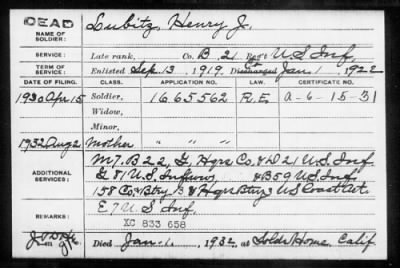 DEAD
NAME OF SOLDIER: Lubitz, Henry J.
SERVICE: Late rank, Co. B, 21 Reg't U.S. Inf.
TERM OF SERVICE: Enlisted Sep. 13, 1919, Discharged Jan 1, 1922
DATE OF FILING. CLASS. APPLICATION NO. LAW. CERTIFICATE NO.
1930 Apr. 15 Soldier, 1665562 R.E. a-6-15-31
Widow,
Minor,
1932 Aug 2 Mother " " "
ADDITIONAL SERVICES: M7. B 22, G Hqrs Co. & D 21 U.S. Inf
G 81 U.S. & B 59 U.S. Inf.
158 Co. & Hqrs U.S. Coast Art.
REMARKS: E 7 U.S. Inf.
XC 833 658
Died Jan. 1, 1932, at Solds Home Calif